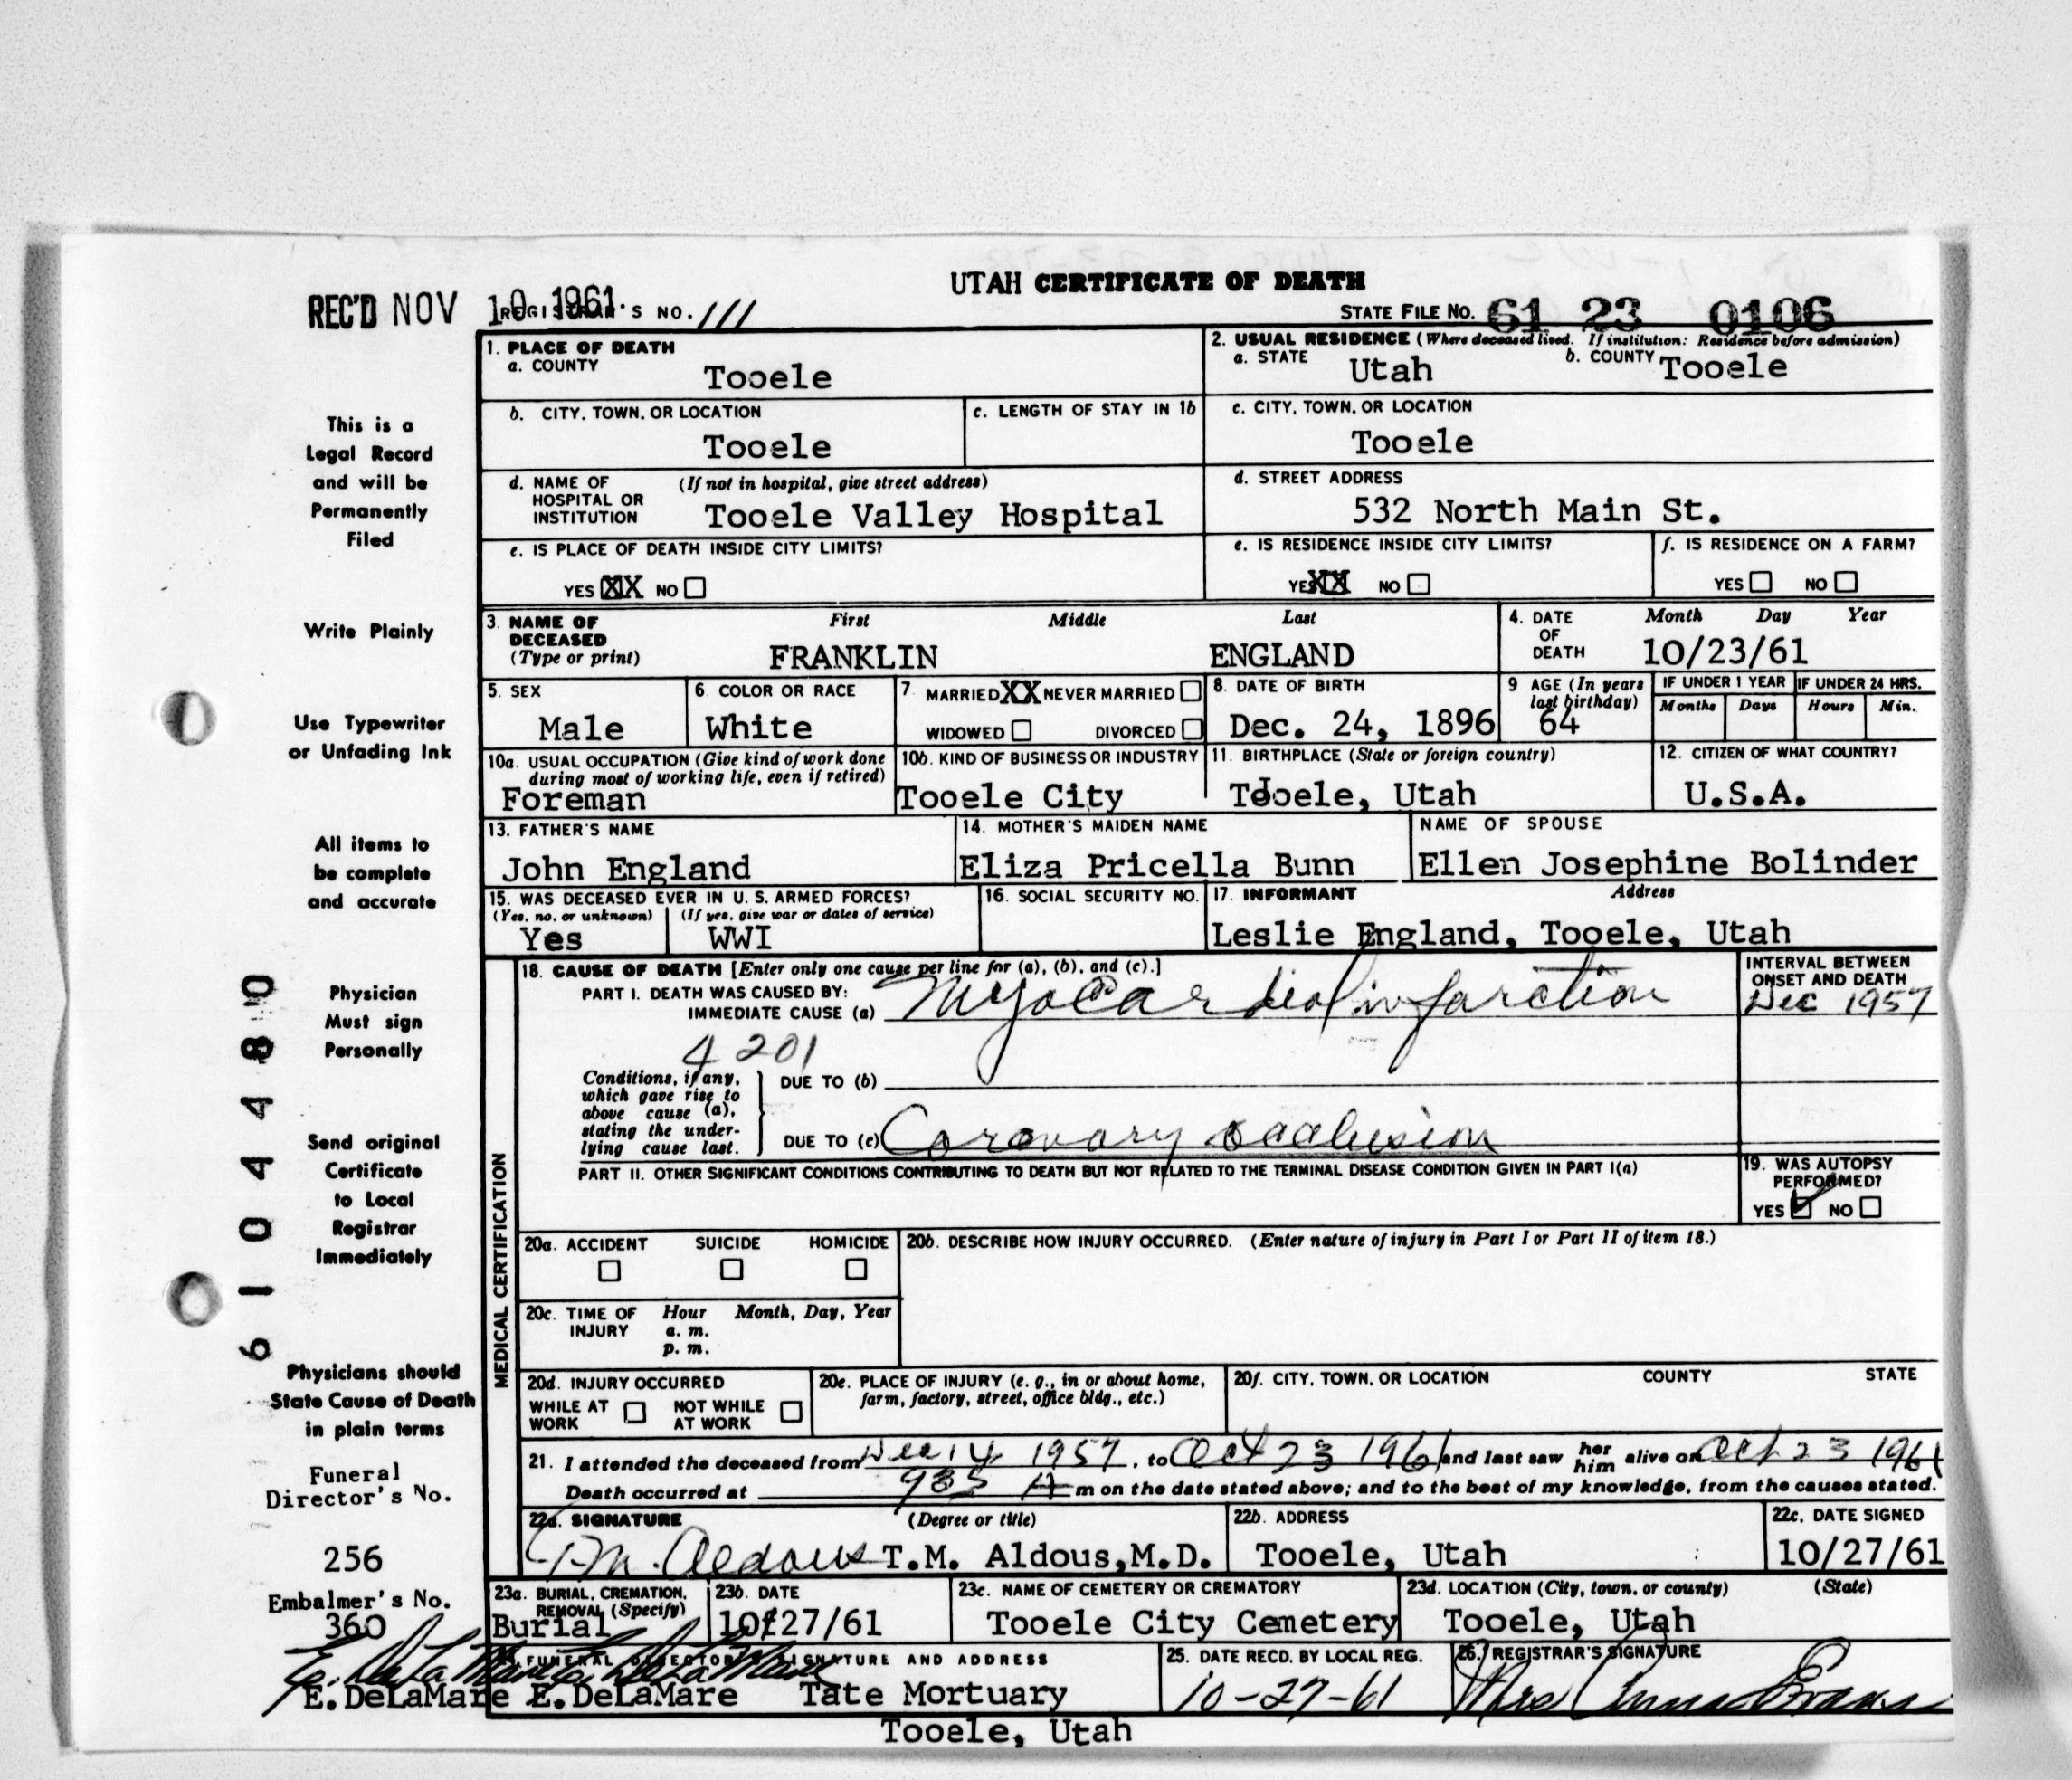 UTAH CERTIFICATE OF DEATH
REC'D NOV 10 1961
REGISTRAR'S NO. 111
STATE FILE NO. 61 23 0106
1. PLACE OF DEATH
a. COUNTY
Tooele
2. USUAL RESIDENCE (Where deceased lived. If institution: Residence before admission)
a. STATE
Utah
b. COUNTY
Tooele
b. CITY, TOWN, OR LOCATION
Tooele
c. LENGTH OF STAY IN 1b
c. CITY, TOWN, OR LOCATION
Tooele
d. NAME OF HOSPITAL OR INSTITUTION
(If not in hospital, give street address)
Tooele Valley Hospital
d. STREET ADDRESS
532 North Main St.
e. IS PLACE OF DEATH INSIDE CITY LIMITS?
YES XX NO
e. IS RESIDENCE INSIDE CITY LIMITS?
YES XX NO
f. IS RESIDENCE ON A FARM?
YES NO
3. NAME OF DECEASED
(Type or print)
First Middle Last
FRANKLIN ENGLAND
4. DATE OF DEATH
Month Day Year
10/23/61
5. SEX
Male
6. COLOR OR RACE
White
7. MARRIED XX NEVER MARRIED
WIDOWED DIVORCED
8. DATE OF BIRTH
Dec. 24, 1896
9 AGE (In years last birthday)
64
IF UNDER 1 YEAR
Months Days
IF UNDER 24 HRS.
Hours Min.
10a. USUAL OCCUPATION (Give kind of work done during most of working life, even if retired)
Foreman
10b. KIND OF BUSINESS OR INDUSTRY
Tooele City
11. BIRTHPLACE (State or foreign country)
Tooele, Utah
12. CITIZEN OF WHAT COUNTRY?
U.S.A.
13. FATHER'S NAME
John England
14. MOTHER'S MAIDEN NAME
Eliza Pricella Bunn
NAME OF SPOUSE
Ellen Josephine Bolinder
15. WAS DECEASED EVER IN U. S. ARMED FORCES?
(Yes, no, or unknown) (If yes, give war or dates of service)
Yes WWI
16. SOCIAL SECURITY NO.
17. INFORMANT Address
Leslie England, Tooele, Utah
MEDICAL CERTIFICATION
18. CAUSE OF DEATH [Enter only one cause per line for (a), (b), and (c).]
PART I. DEATH WAS CAUSED BY:
IMMEDIATE CAUSE (a) Myocardial infarction
INTERVAL BETWEEN ONSET AND DEATH
Dec 1957
4 201
Conditions, if any, which gave rise to above cause (a), stating the underlying cause last.
DUE TO (b)
DUE TO (c) Coronary occlusion
PART II. OTHER SIGNIFICANT CONDITIONS CONTRIBUTING TO DEATH BUT NOT RELATED TO THE TERMINAL DISEASE CONDITION GIVEN IN PART I(a)
19. WAS AUTOPSY PERFORMED?
YES NO
20a. ACCIDENT SUICIDE HOMICIDE
20b. DESCRIBE HOW INJURY OCCURRED. (Enter nature of injury in Part I or Part II of item 18.)
20c. TIME OF INJURY
Hour Month, Day, Year
a. m.
p. m.
20d. INJURY OCCURRED
WHILE AT WORK NOT WHILE AT WORK
20e. PLACE OF INJURY (e. g., in or about home, farm, factory, street, office bldg., etc.)
20f. CITY, TOWN, OR LOCATION COUNTY STATE
21. I attended the deceased from Dec 14 1957, to Oct 23 1961 and last saw her him alive on Oct 23 1961
Death occurred at 935 A m on the date stated above; and to the best of my knowledge, from the causes stated.
22a. SIGNATURE (Degree or title)
T.M. Aldous T.M. Aldous, M.D.
22b. ADDRESS
Tooele, Utah
22c. DATE SIGNED
10/27/61
23a. BURIAL, CREMATION, REMOVAL (Specify)
Burial
23b. DATE
10/27/61
23c. NAME OF CEMETERY OR CREMATORY
Tooele City Cemetery
23d. LOCATION (City, town, or county) (State)
Tooele, Utah
FUNERAL DIRECTOR'S SIGNATURE AND ADDRESS
E. DeLaMare E. DeLaMare
E. DeLaMare E. DeLaMare Tate Mortuary
Tooele, Utah
25. DATE RECD. BY LOCAL REG.
10-27-61
26. REGISTRAR'S SIGNATURE
Mrs Anna Evans
This is a
Legal Record
and will be
Permanently
Filed
Write Plainly
Use Typewriter
or Unfading Ink
All items to
be complete
and accurate
Physician
Must sign
Personally
Send original
Certificate
to Local
Registrar
Immediately
Physicians should
State Cause of Death
in plain terms
Funeral
Director's No.
256
Embalmer's No.
360
61 04480